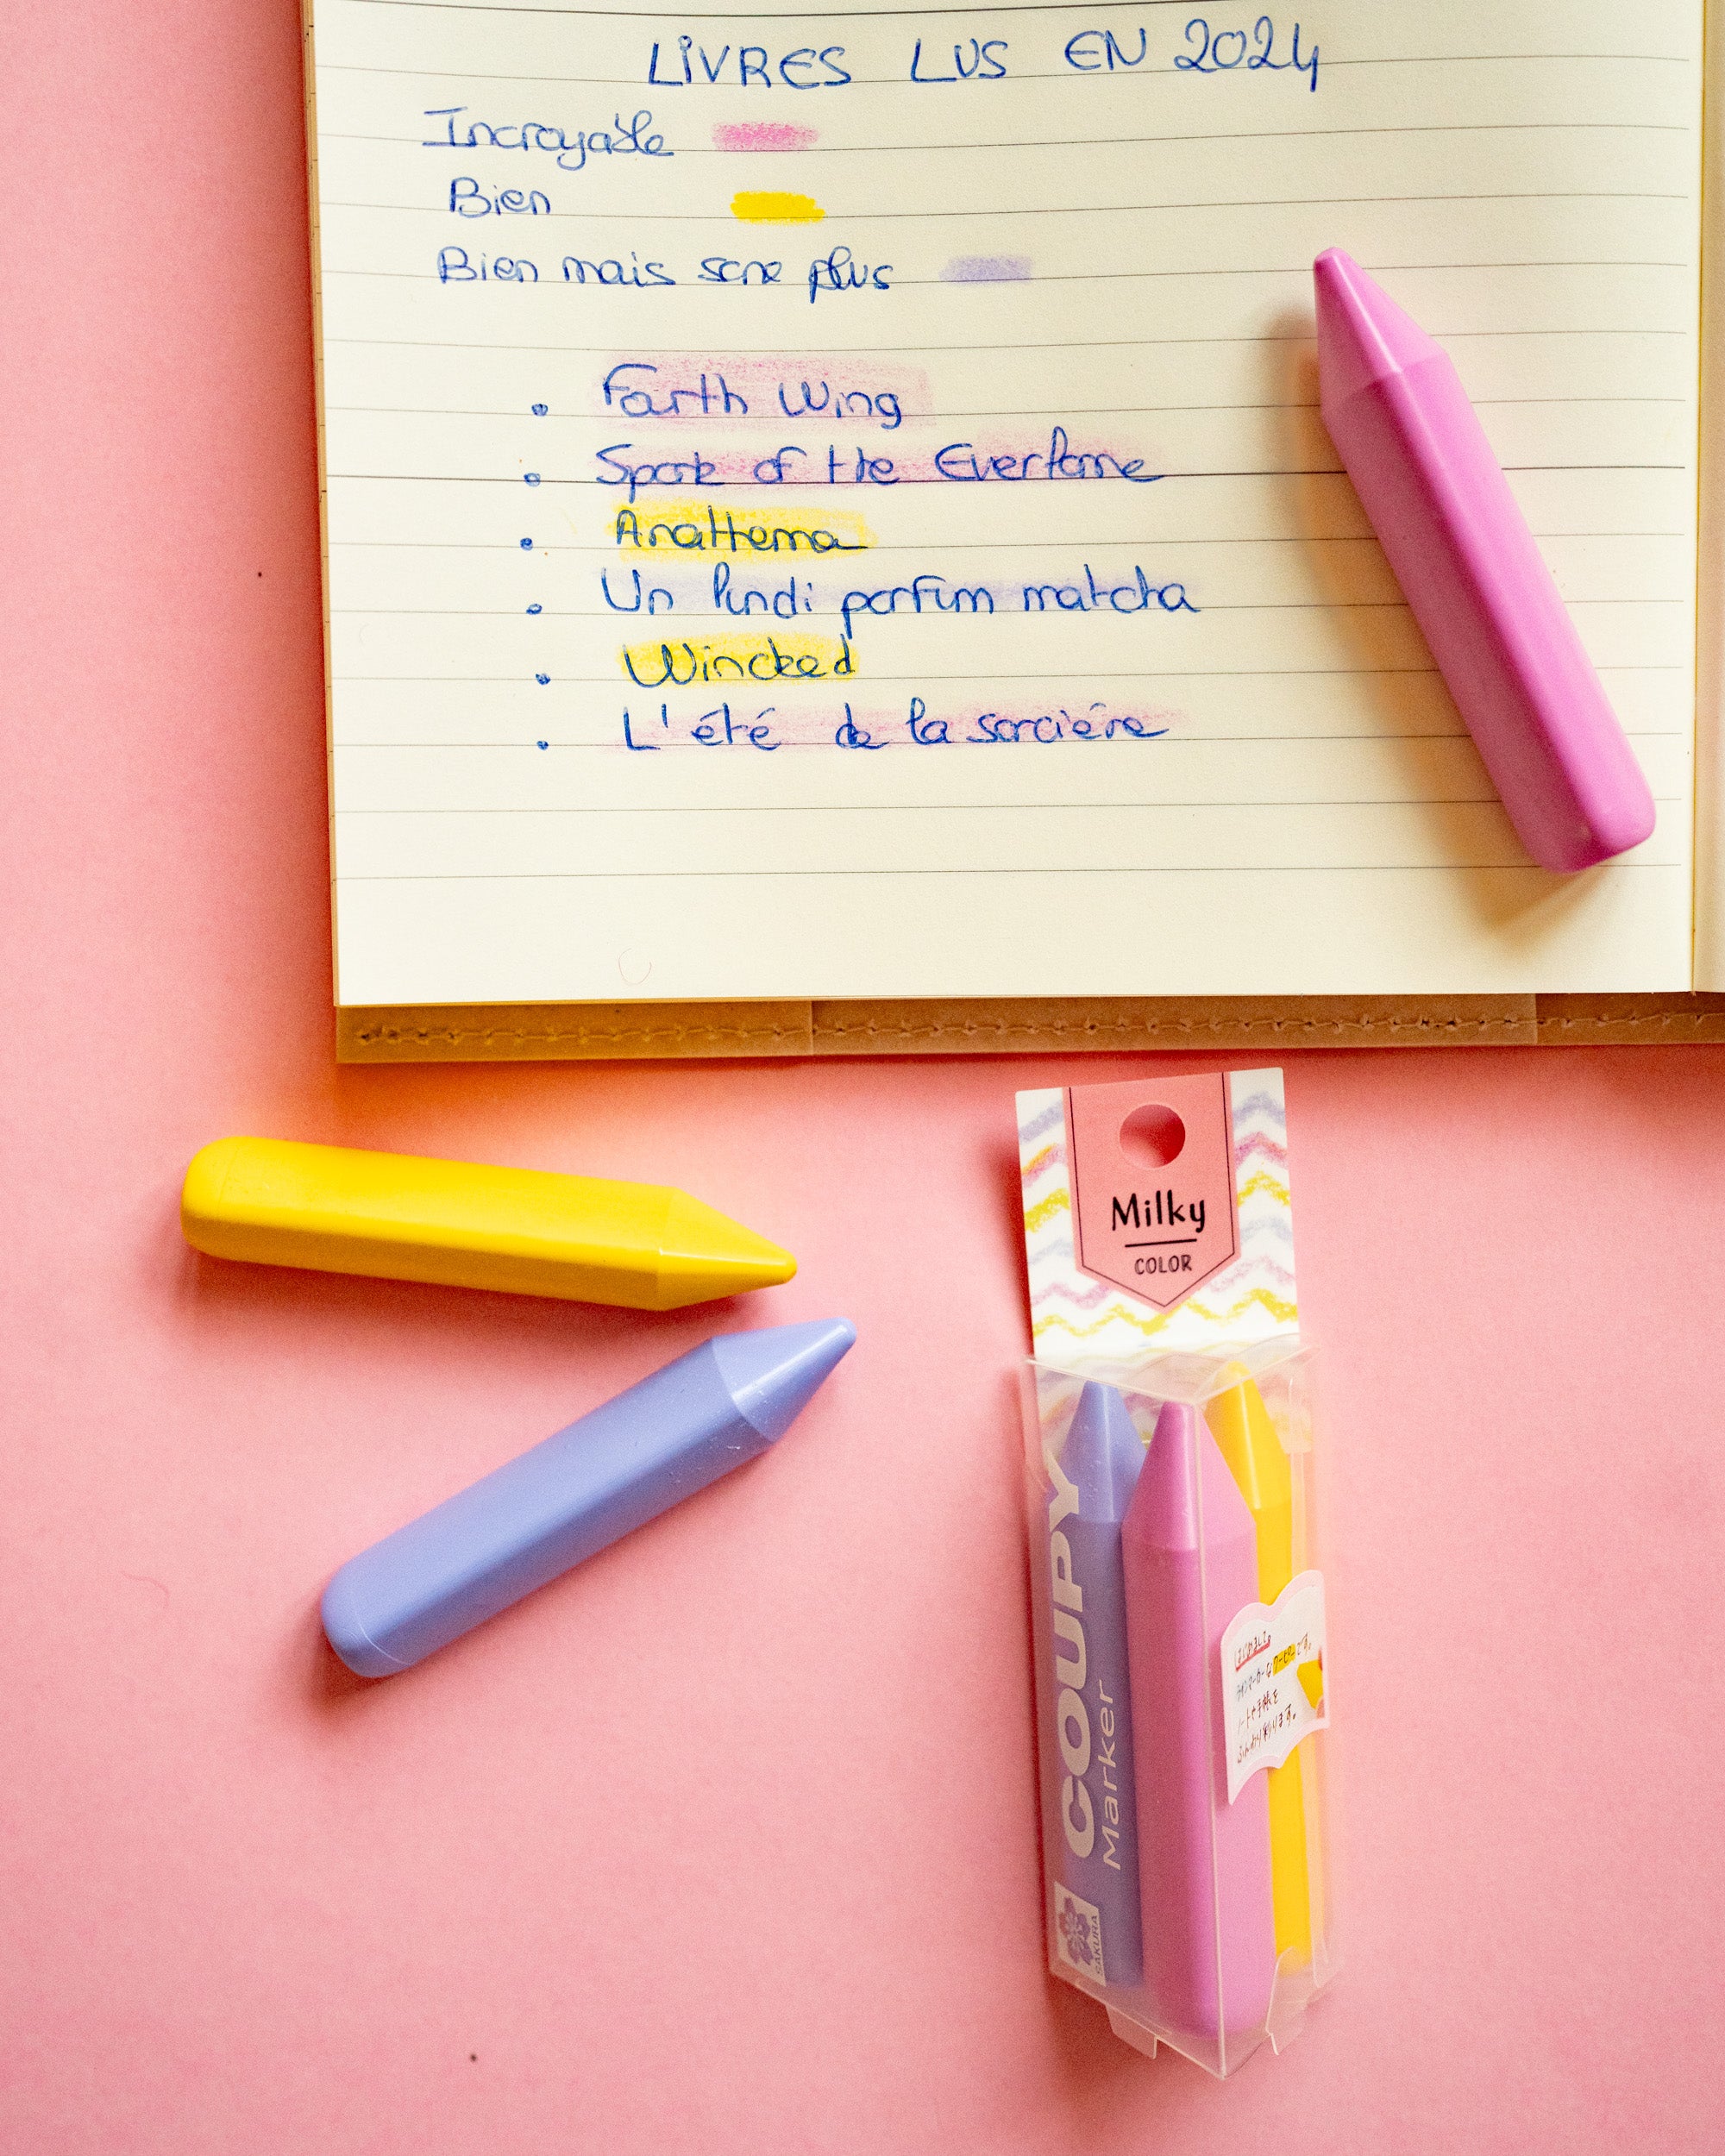 LIVRES LUS EN 2024
Incroyable
Bien
Bien mais sans plus
Fourth Wing
Spark of the Everflame
Anathema
Un lundi parfum matcha
Wincked
L'été de la sorcière
Milky
COLOR
COUPY
Marker
SAKURA
はじめまして。
ラインマーカーなクーピーです。
ノートや手紙を
ふんわり彩ります。